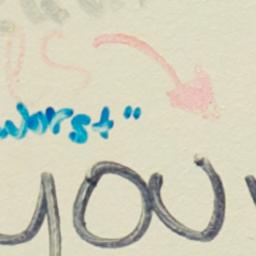 us
worst"
you